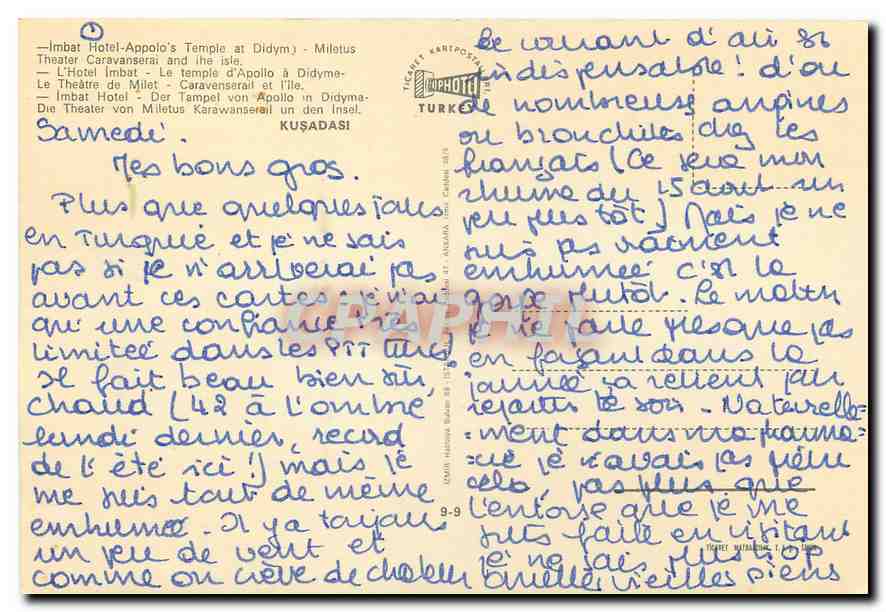 ①
—İmbat Hotel-Appolo's Temple at Didym) - Miletus
Theater Caravanserai and ihe isle.
— L'Hotel İmbat - Le temple d'Apollo à Didyme-
Le Theâtre de Milet - Caravenserail et l'ile.
— İmbat Hotel - Der Tampel von Apollo in Didyma-
Die Theater von Miletus Karawanserail un den Insel.
KUŞADASI
Samedi.
Mes bons gros.
Plus que quelques jours
en Turquie et je ne sais
pas si je n'arriverai pas
avant ces cartes : je n'ai
qu'une confiance très
limitée dans les PTT turcs)
Il fait beau bien sûr,
chaud (42 à l'ombre
lundi dernier, record
de l'été ici !) mais je
me suis tout de même
enrhumée. Il y a toujours
un peu de vent et
comme on crève de chaleur
TİCARET KARTPOSTALLARI
TURKEY
9-9
le courant d'air est
indispensable ! d'où
de nombreuses angines
ou bronchites chez les
français (Ce sera mon
rhume du 15 aout un
peu plus tôt) Mais je ne
suis pas vraiment
enrhumée c'est la
gorge plutôt. Le matin
je ne parle presque pas
en forçant dans la
journée ça revient pour
repartir le soir. Naturelle-
=ment dans ma pharma=
=cie je n'avais pas prévu
cela, pas plus que
l'entorse que je me
suis faite en visitant
je ne sais plus trop
quelles vieilles pierres
CPAPHIL